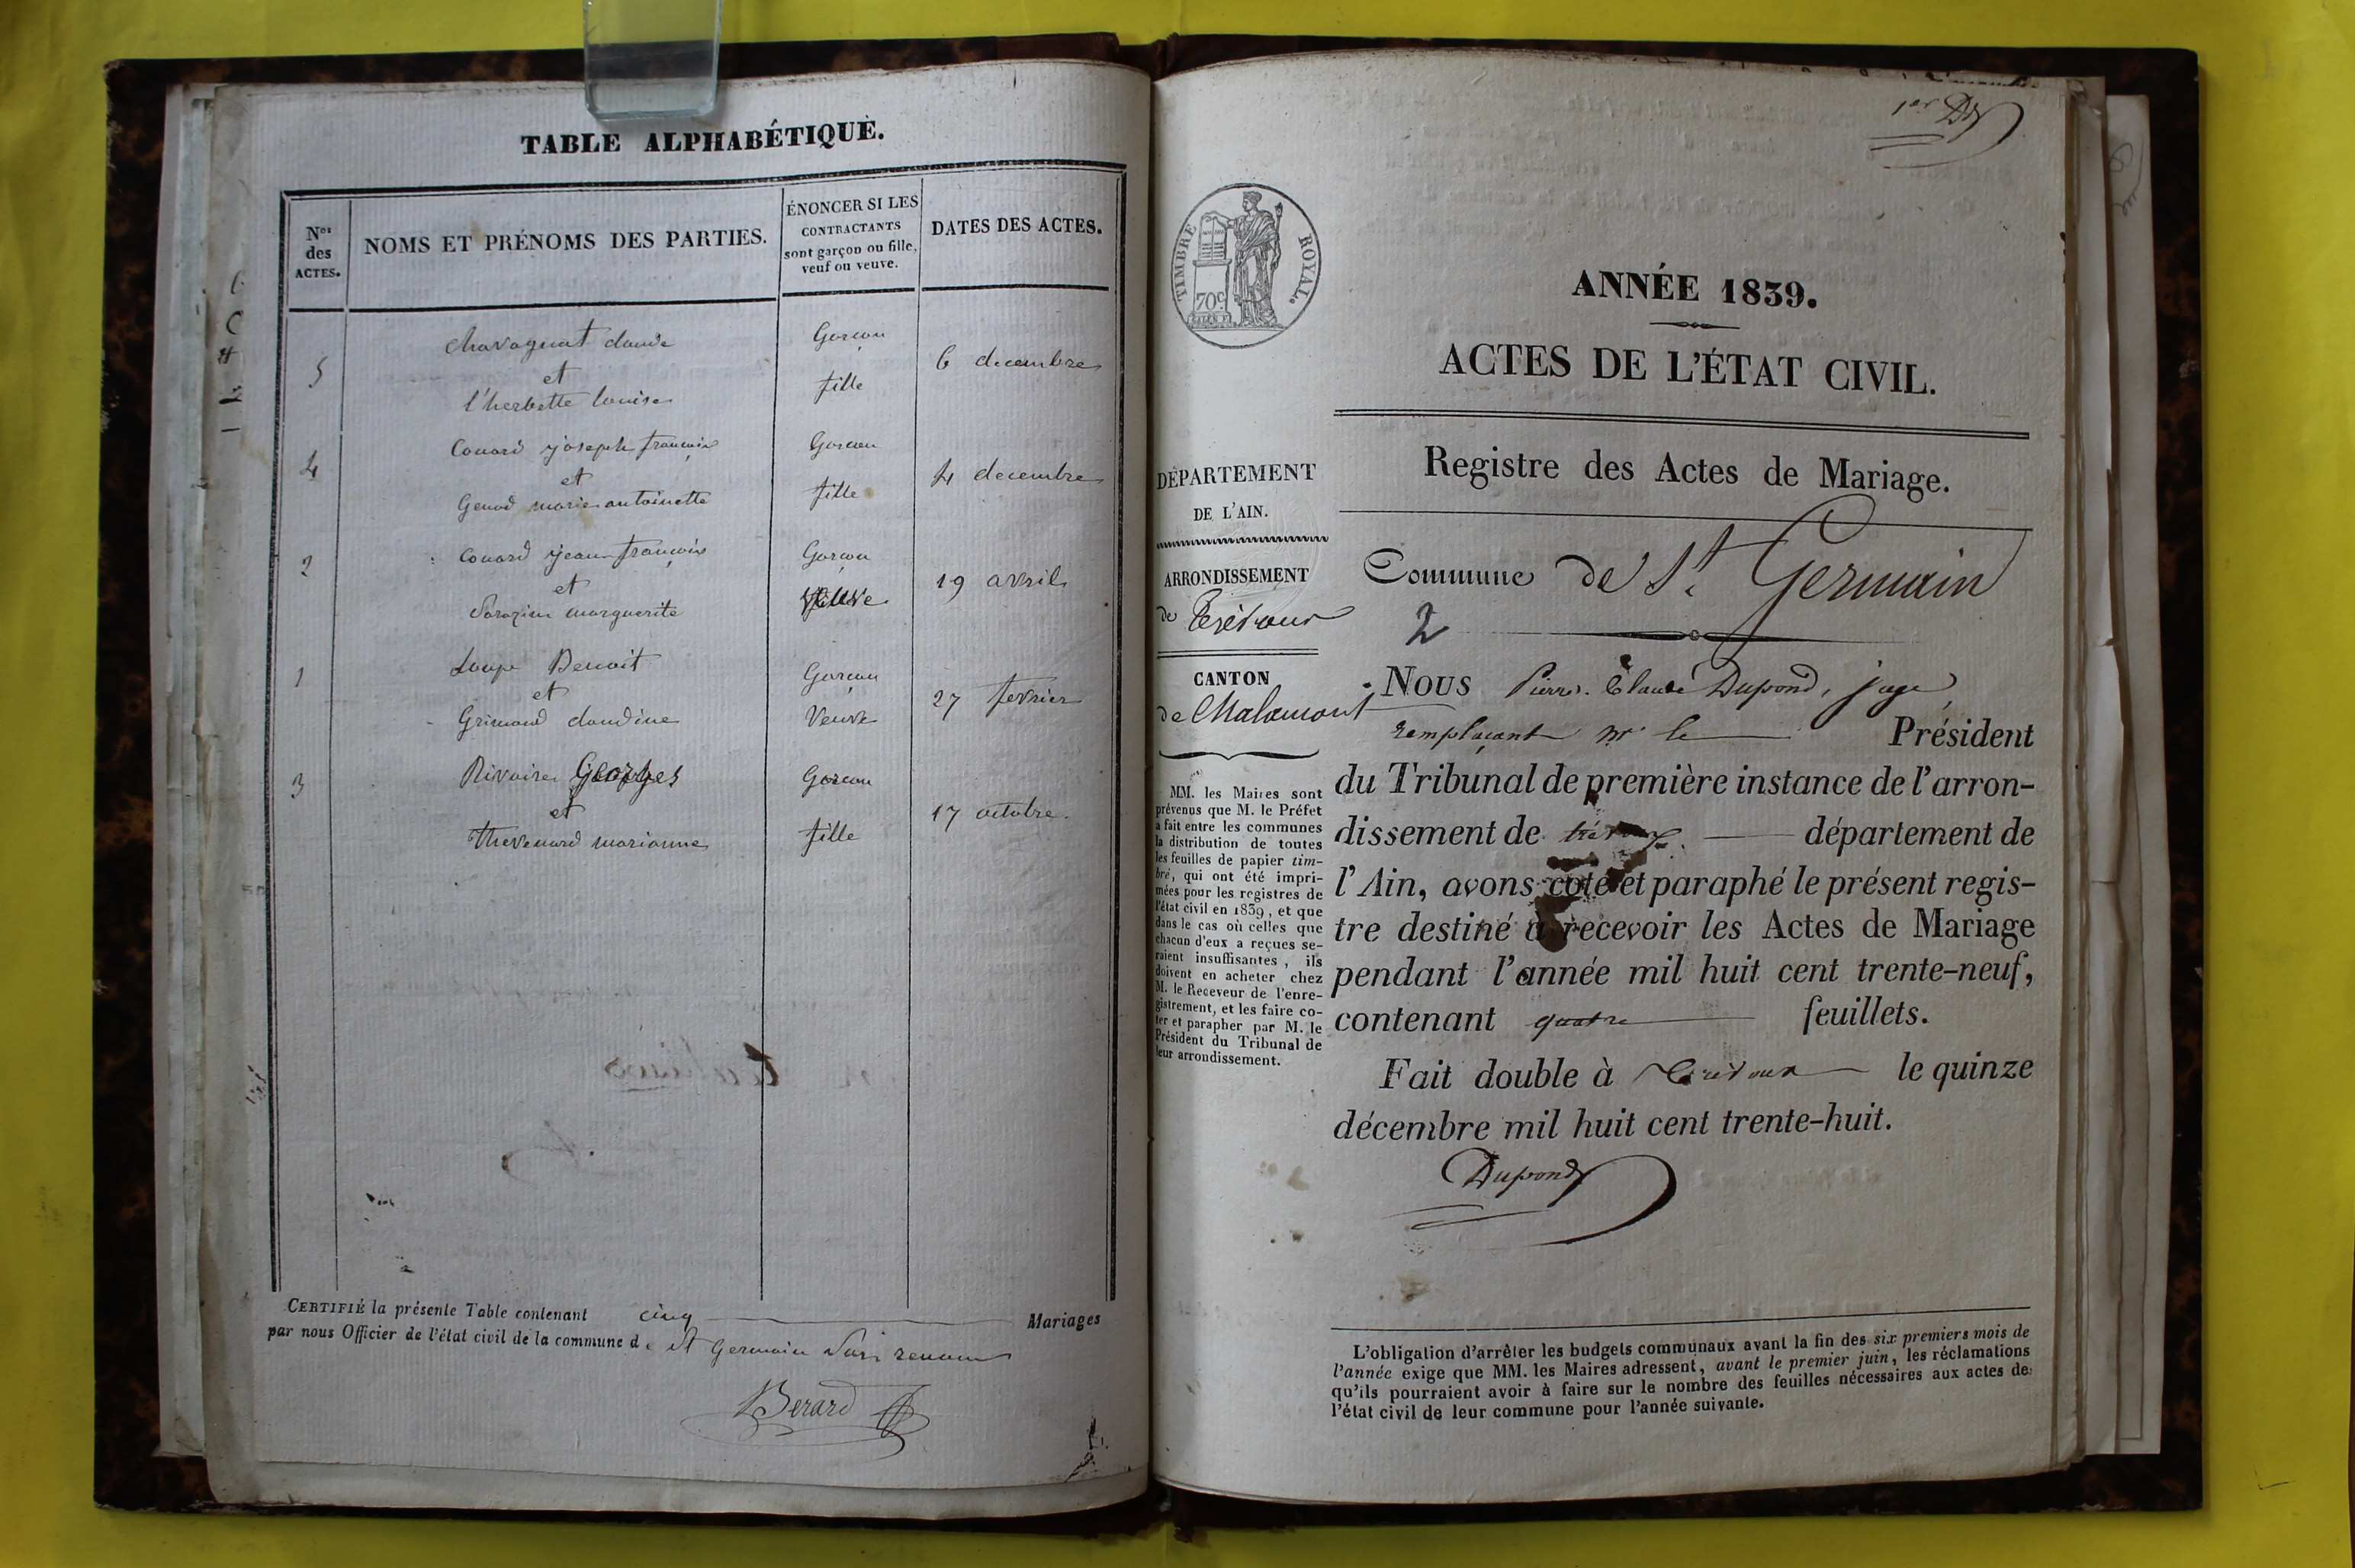 TABLE ALPHABÉTIQUE.
Nos des ACTES.
NOMS ET PRÉNOMS DES PARTIES.
ÉNONCER SI LES
CONTRACTANTS
sont garçon ou fille,
veuf ou veuve.
DATES DES ACTES.
5
Chavagnat claude
et
l'herbette louise
Garçon
fille
6 decembre
4
Couard joseph françois
et
Genod marie antoinette
Garcon
fille
4 decembre
2
Couard jean françois
et
Sarazin marguerite
Garçon
Veuve
19 avril
1
Loup Benoit
et
Grimaud claudine
Garçon
Veuve
27 fevrier
3
Rivoire Georges
et
thevenard marianne
Garcon
fille
17 octobre.
CERTIFIÉ la présente Table contenant cinq Mariages
par nous Officier de l'état civil de la commune de St Germain Sur renom
Berard
1er
TIMBRE ROYAL.
70c.
ANNÉE 1839.
ACTES DE L'ÉTAT CIVIL.
Registre des Actes de Mariage.
DÉPARTEMENT
DE L'AIN.
ARRONDISSEMENT
de Trévoux
CANTON
de Chalamont
MM. les Maires sont
prévenus que M. le Préfet
a fait entre les communes
la distribution de toutes
les feuilles de papier tim-
bré, qui ont été impri-
mées pour les registres de
l'état civil en 1839, et que
dans le cas où celles que
chacun d'eux a reçues se-
raient insuffisantes, ils
doivent en acheter chez
M. le Receveur de l'enre-
gistrement, et les faire co-
ter et parapher par M. le
Président du Tribunal de
leur arrondissement.
Commune de St Germain
2
Nous Pierre Claude Dupond, juge,
remplaçant mr le Président
du Tribunal de première instance de l'arron-
dissement de trévoux département de
l'Ain, avons coté et paraphé le présent regis-
tre destiné à recevoir les Actes de Mariage
pendant l'année mil huit cent trente-neuf,
contenant quatre feuillets.
Fait double à Trévoux le quinze
décembre mil huit cent trente-huit.
Dupond
L'obligation d'arrêter les budgets communaux avant la fin des six premiers mois de
l'année exige que MM. les Maires adressent, avant le premier juin, les réclamations
qu'ils pourraient avoir à faire sur le nombre des feuilles nécessaires aux actes de
l'état civil de leur commune pour l'année suivante.